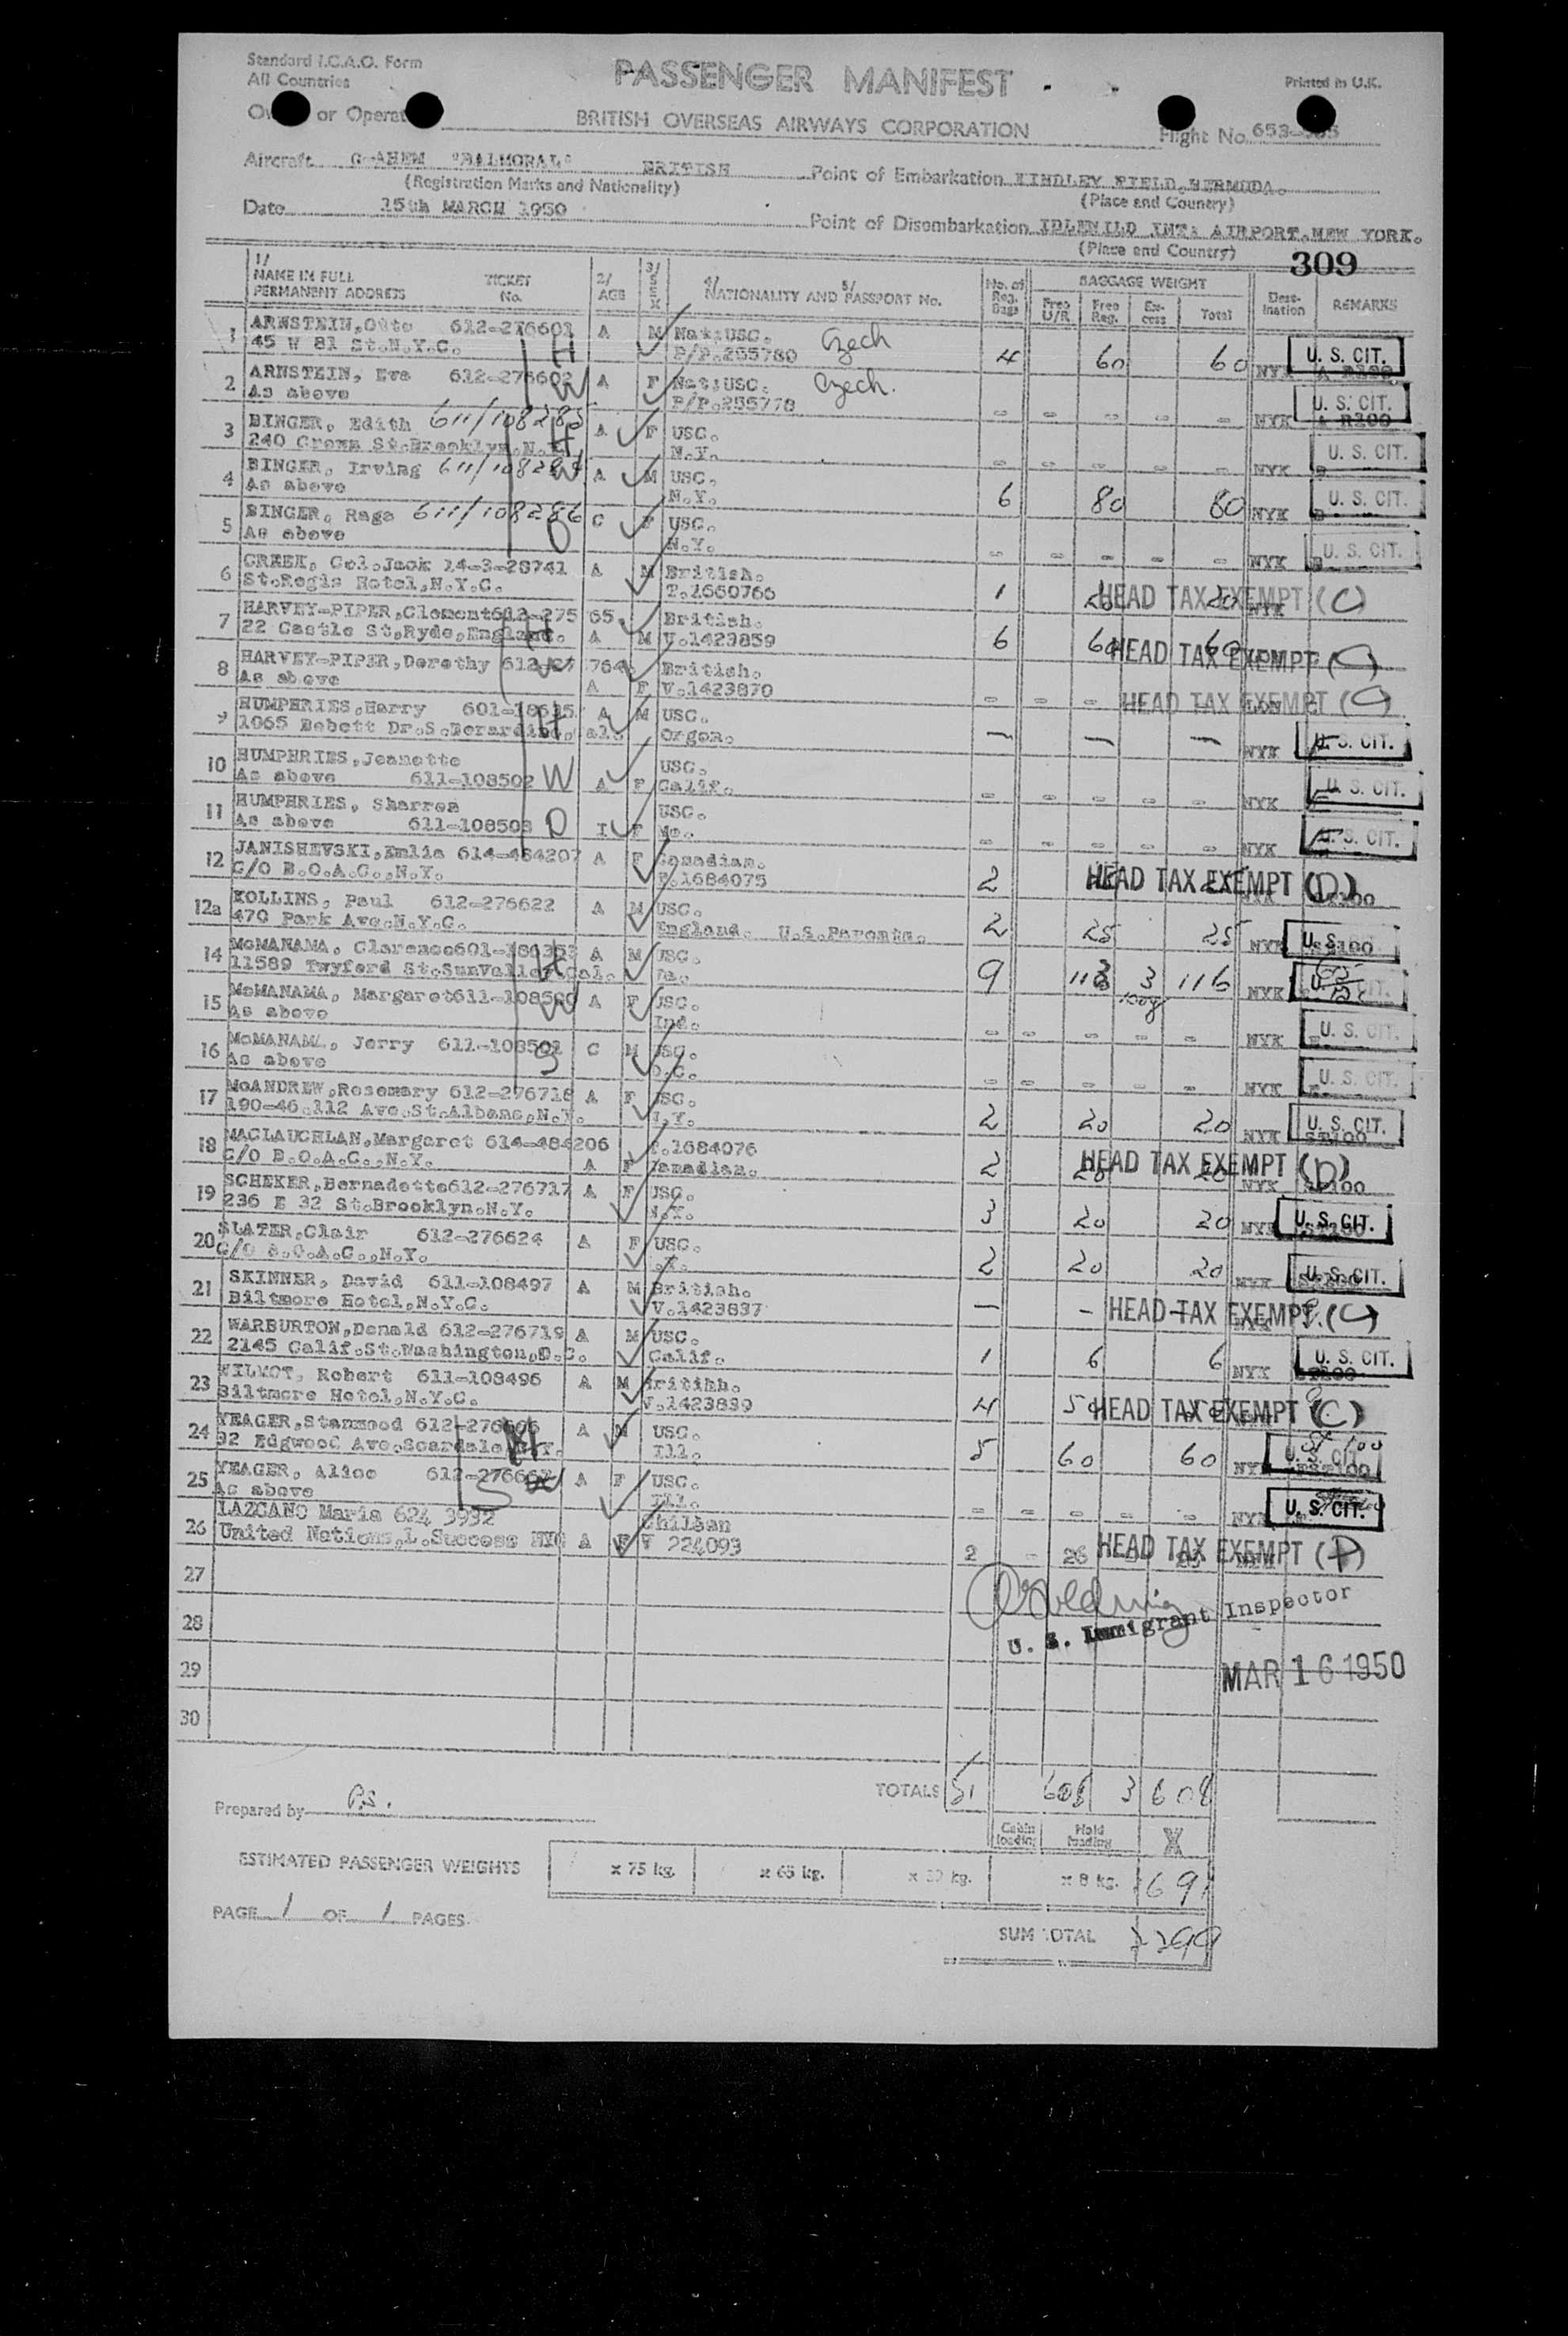 Standard I.C.A.O. Form
All Countries
PASSENGER MANIFEST
Printed in U.K.
or Operat
BRITISH OVERSEAS AIRWAYS CORPORATION
Flight No. 653-
Aircraft G-AHEM "BALMORAL" BRITISH
(Registration Marks and Nationality)
Point of Embarkation KINDLEY FIELD, BERMUDA.
(Place and Country)
Date 15th MARCH 1950
Point of Disembarkation IDLEWILD INT: AIRPORT, NEW YORK.
(Place and Country)
309
1/ NAME IN FULL PERMANENT ADDRESS TICKET No. 2/ AGE 3/ SEX 4/ 5/ NATIONALITY AND PASSPORT No. No. of Reg. Bags BAGGAGE WEIGHT Free U/R Free Reg. Excess Total Destination REMARKS
1 ARNSTEIN, Otto 612-276601 A M Nat:USC. Czech
45 W 81 St.N.Y.C. H P/P.255780 4 60 60 NYK U. S. CIT.
2 ARNSTEIN, Eva 612-276602 A F Nat:USC. Czech.
As above W P/P.255778 - - - - - NYK U. S. CIT.
3 BINGER, Edith 611/108285 A F USC.
240 Crown St.Brooklyn.N.Y. N.Y. - - - - - NYK U. S. CIT.
4 BINGER, Irving A M USC.
As above N.Y. 6 80 80 NYK U. S. CIT.
5 BINGER, Rage 611/108286 C F USC.
As above D N.Y. - - - - - NYK U. S. CIT.
6 CREEK, Col.Jack 14-3-28741 A M British.
St.Regis Hotel,N.Y.C. T.1660766 1 20 20 HEAD TAX EXEMPT (C)
7 HARVEY-PIPER,Clement 612-275 65. British.
22 Castle St.Ryde,England. H A M V.1423859 6 60 60 HEAD TAX EXEMPT (C)
8 HARVEY-PIPER,Dorothy 764 British.
As above W A F V.1423870 - - - HEAD TAX EXEMPT (C)
9 HUMPHRIES,Harry A M USC.
1065 Bobett Dr.S.Berardino, al. H Oregon. - - - NYK U. S. CIT.
10 HUMPHRIES,Jeanette USC.
As above 611-108502 W A F Calif. - - - - - NYK U. S. CIT.
11 HUMPHRIES, Sharren USC.
As above 611-108503 D I F Mo. - - - - - NYK U. S. CIT.
12 JANISHEVSKI,Emlia 614-484207 A F Canadian.
C/O B.O.A.C.,N.Y. P.1684075 2 HEAD TAX EXEMPT (D)
12a KOLLINS, Paul 612-276622 A M USC.
470 Park Ave.N.Y.C. England. U.S.Parents. 2 25 25 NYK U. S.
14 McMANAMA, Clarence 601- A M USC.
11589 Twyford St.SunValley Cal. H Pa. 9 113 3 116 NYK U. S. CIT.
15 McMANAMA, Margaret 611-108500 A F USC.
As above W Ind. - - - - - NYK U. S. CIT.
16 McMANAMA, Jerry 611-108501 C M USC.
As above S D.C. - - - - - NYK U. S. CIT.
17 McANDREW,Rosemary 612-276718 A F USC.
190-46.112 Ave.St.Albans,N.Y. N.Y. 2 20 20 NYK U. S. CIT.
18 MACLAUCHLAN,Margaret 614-484206 P.1684076
C/O B.O.A.C.,N.Y. A F Canadian. 2 20 20 NYK HEAD TAX EXEMPT (D)
19 SCHEKER,Bernadette 612-276717 A F USC.
236 E 32 St.Brooklyn.N.Y. N.Y. 3 20 20 NYK U. S. CIT.
20 SLATER,Clair 612-276624 A F USC.
C/O B.O.A.C.,N.Y. 2 20 20 NYK U. S. CIT.
21 SKINNER, David 611-108497 A M British.
Biltmore Hotel,N.Y.C. V.1423837 - - HEAD TAX EXEMPT. (C)
22 WARBURTON,Donald 612-276719 A M USC.
2145 Calif.St.Washington,D.C. Calif. 1 6 6 NYK U. S. CIT.
23 WILMOT, Robert 611-108496 A M Britihh.
Biltmore Hotel,N.Y.C. V.1423839 4 HEAD TAX EXEMPT (C)
24 YEAGER,Stanwood A M USC.
92 Edgwood Ave.Scardale N.Y. H Ill. 5 60 60 NYK U. S. CIT.
25 YEAGER, Alice A F USC.
As above W Ill. - - - - - NYK U. S. CIT.
26 LAZCANO Maria 624 3932 Chilean
United Nations,L.Success NYC A F V 224093 2 - HEAD TAX EXEMPT (D)
27
28
29
30
U. S. Immigrant Inspector
MAR 16 1950
TOTALS 51 3 608
Prepared by P.S.
Cabin loading Hold loading
ESTIMATED PASSENGER WEIGHTS x 75 kg. x 65 kg. x kg. x 8 kg. 1691
PAGE 1 OF 1 PAGES
SUM TOTAL 2299